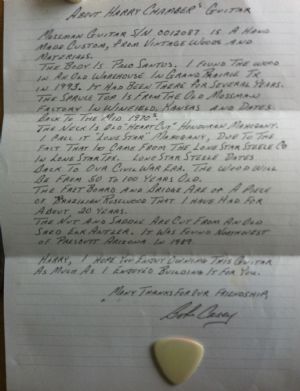 ABOUT HARRY CHAMBER'S GUITAR
MOSSMAN GUITAR S/N 0012087 IS A HAND
MADE CUSTOM, FROM VINTAGE WOODS AND
MATERIALS.
THE BODY IS PALO SANTOS. I FOUND THE WOOD
IN AN OLD WAREHOUSE IN GRAND PRAIRIE TX
IN 1993. IT HAD BEEN THERE FOR SEVERAL YEARS.
THE SPRUCE TOP IS FROM THE OLD MOSSMAN
FACTORY IN WINFIELD, KANSAS AND DATES
BACK TO THE MID 1970s.
THE NECK IS OLD HEART CUT HONDURAN MAHOGANY.
I CALL IT LONE STAR MAHOGANY, DUE TO THE
FACT THAT IT CAME FROM THE LONE STAR STEELE CO
IN LONE STAR TEX. LONE STAR STEELE DATES
BACK TO OUR CIVIL WAR ERA. THE WOOD WILL
BE FROM 50 TO 100 YEARS OLD.
THE FRET BOARD AND BRIDGE ARE OF A PIECE
OF BRAZILIAN ROSEWOOD THAT I HAVE HAD FOR
ABOUT 20 YEARS.
THE NUT AND SADDLE ARE CUT FROM AN OLD
SHED ELK ANTLER. IT WAS FOUND NORTHWEST
OF PRESCOTT ARIZONA IN 1989.
HARRY, I HOPE YOU ENJOY OWNING THIS GUITAR
AS MUCH AS I ENJOYED BUILDING IT FOR YOU.
MANY THANKS FOR OUR FRIENDSHIP,
Bob Casey